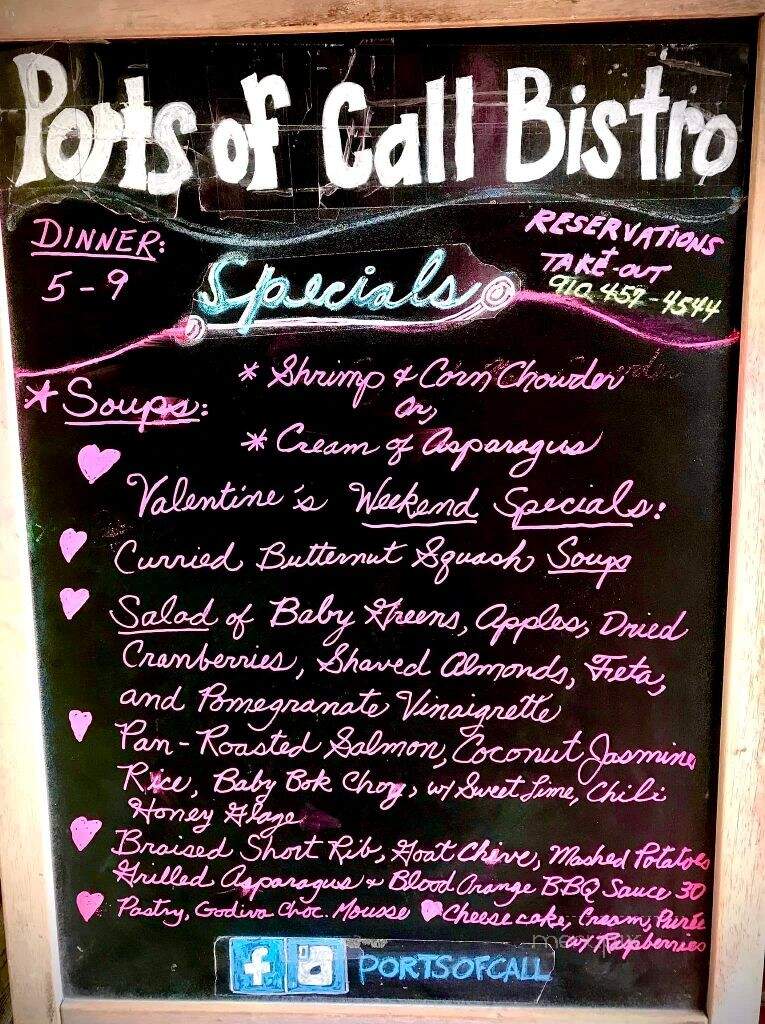 Ports of Call Bistro
DINNER:
5-9
Specials
RESERVATIONS
+
TAKE-OUT
910 457-4544
* Soups:
* Shrimp & Corn Chowder
or,
* Cream of Asparagus
Valentine's Weekend Specials:
Curried Butternut Squash Soup
Salad of Baby Greens, Apples, Dried
Cranberries, Shaved Almonds, Feta,
and Pomegranate Vinaigrette
Pan-Roasted Salmon, Coconut Jasmine
Rice, Baby Bok Choy, w/ Sweet Lime, Chili
Honey Glaze
Braised Short Rib, Goat Chévre, Mashed Potatoes
Grilled Asparagus & Blood Orange BBQ Sauce 30
Pastry, Godiva Choc. Mousse Cheesecake, Cream, Purée
w/ Raspberries
f PORTSOFCALL